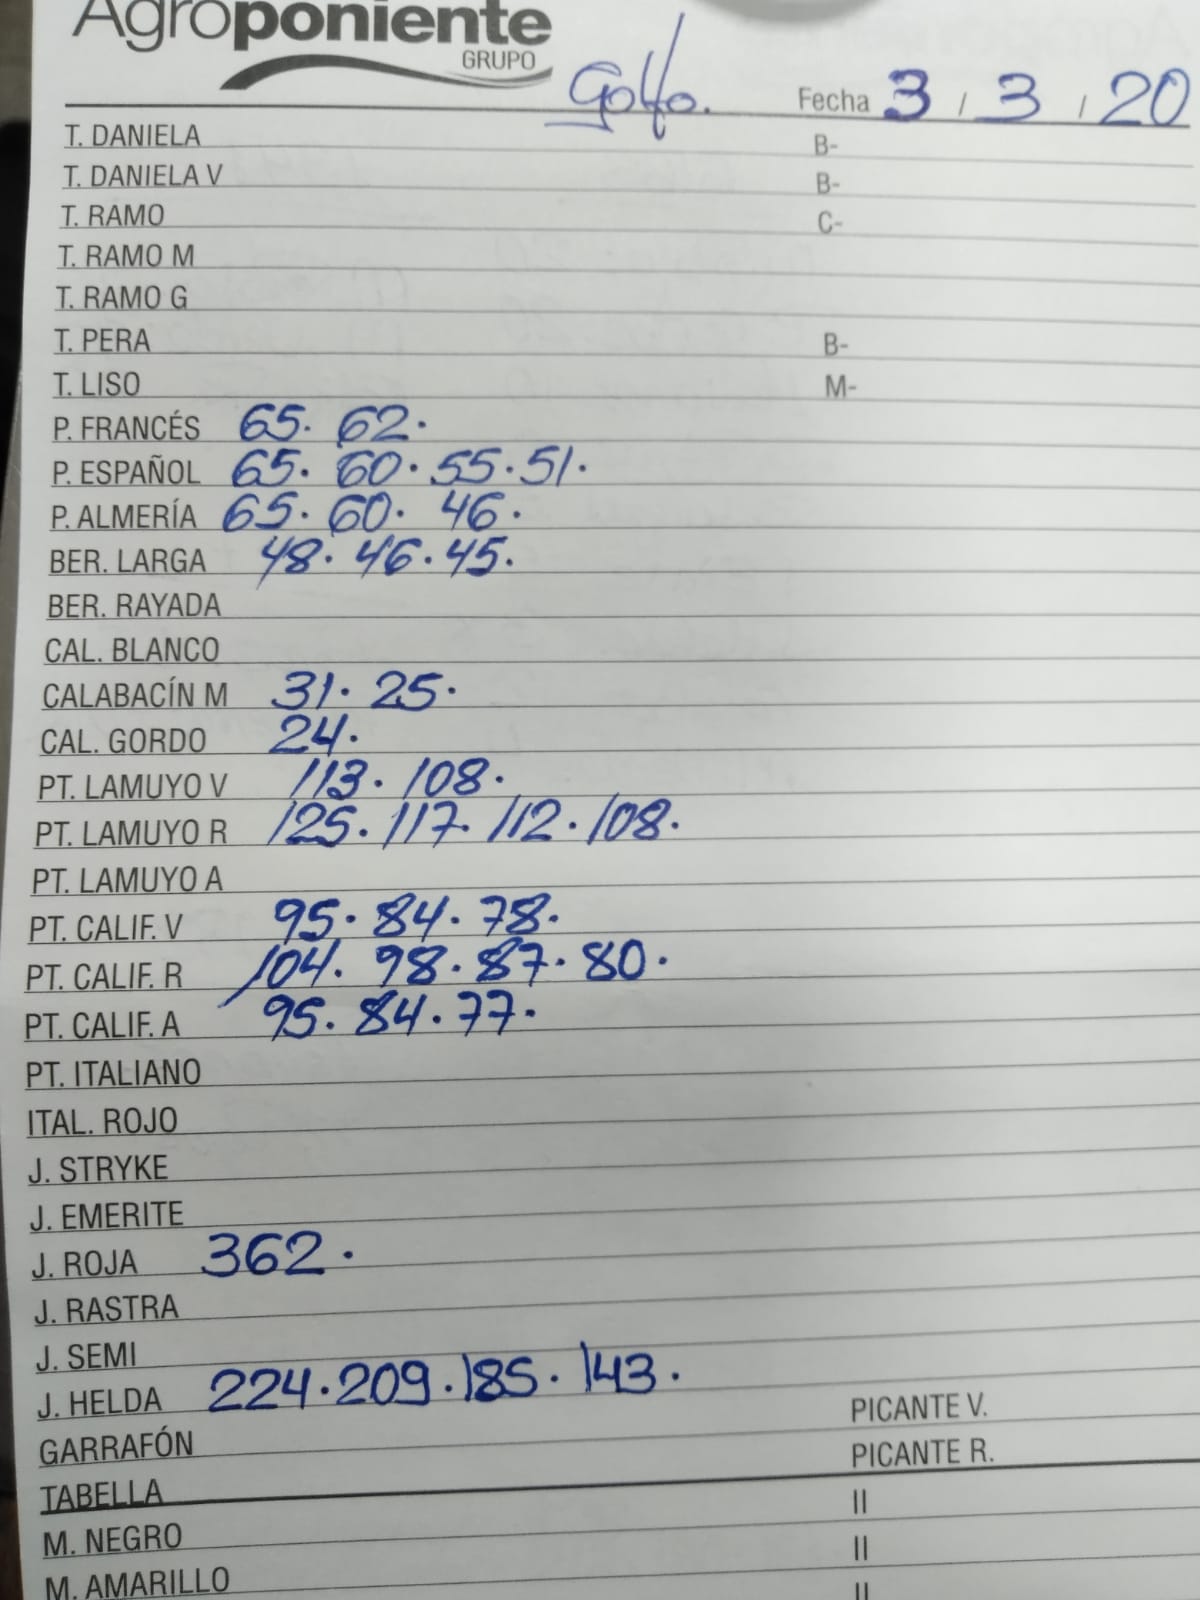 Agroponiente
GRUPO
Golfo. Fecha 3 / 3 / 20
T. DANIELA B-
T. DANIELA V B-
T. RAMO C-
T. RAMO M
T. RAMO G
T. PERA B-
T. LISO M-
P. FRANCÉS 65. 62.
P. ESPAÑOL 65. 60. 55. 51.
P. ALMERÍA 65. 60. 46.
BER. LARGA 48. 46. 45.
BER. RAYADA
CAL. BLANCO
CALABACÍN M 31. 25.
CAL. GORDO 24.
PT. LAMUYO V 113. 108.
PT. LAMUYO R 125. 117. 112. 108.
PT. LAMUYO A
PT. CALIF. V 95. 84. 78.
PT. CALIF. R 104. 98. 87. 80.
PT. CALIF. A 95. 84. 77.
PT. ITALIANO
ITAL. ROJO
J. STRYKE
J. EMERITE
J. ROJA 362.
J. RASTRA
J. SEMI
J. HELDA 224. 209. 185. 143.
GARRAFÓN PICANTE V.
TABELLA PICANTE R.
M. NEGRO II
M. AMARILLO II
II